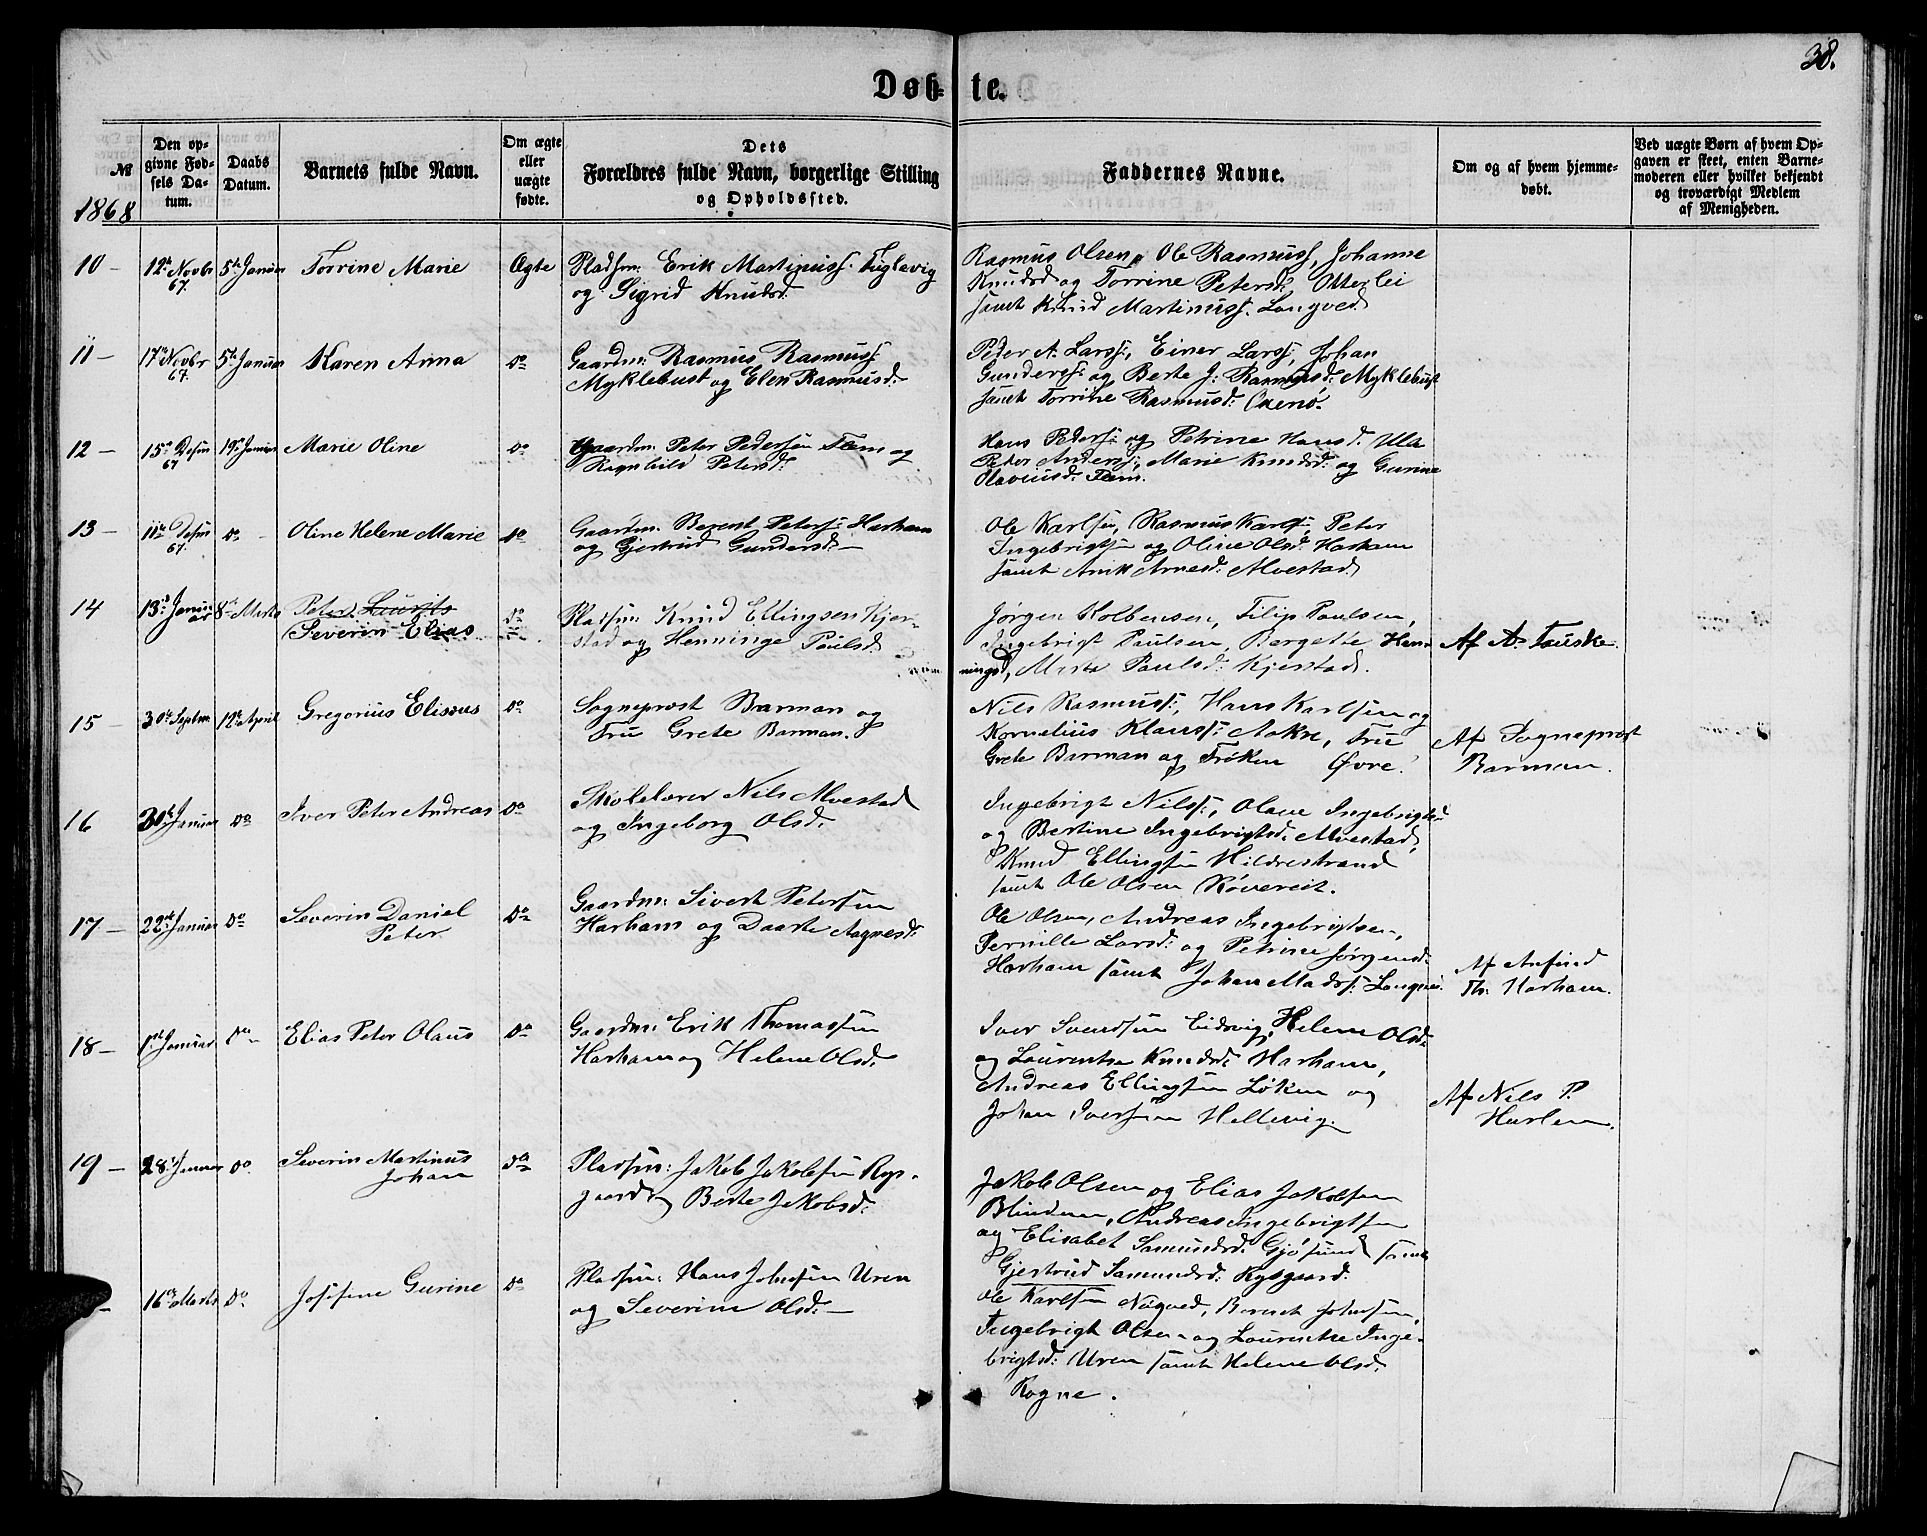 38.
Døb- te.
1868
№
Den op-
givne Fød-
sels Da-
tum.
Daabs
Datum.
Barnets fulde Navn.
Om ægte
eller
uægte
fødte.
Dets
Forældres fulde Navn, borgerlige Stilling
og Opholdssted.
Faddernes Navne.
Om og af hvem hjemme-
døbt.
Ved uægte Børn af hvem Op-
gaven er skeet, enten Barne-
moderen eller hvilket bekjendt
og troværdigt Medlem
af Menigheden.
10 -
12te Novbr
67.
5te Januar
Torrine Marie
Ægte
Pladsm: Erik Martinuss: Fuglevig
og Sigrid Knudsd:
Rasmus Olsen, Ole Rasmuss, Johanne
Knudsd og Torrine Petersd: Otterlei
samt Knud Martinuss. Longved
11 -
17de Novbr
67.
5te Januar
Karen Anna
do
Gaardm: Rasmus Rasmuss:
Myklebust og Elen Rasmusd:
Peder A. Larss:, Einer Larss:, Johan
Gunderss: og Berte J: Rasmusd: Myklebust
samt Torrine Rasmusd:
12 -
15de Desm
67
19de Januar
Marie Oline
do
Gaardm: Peter Pedersen Flem og
Ragnhild Petersd:
Hans Peders: og Petrine Hansd. Ulla
Peter Anderss:, Marie Knudsd: og Gurine
Olaviusd: Flem.
13 -
11te Desm
67.
do
Oline Helene Marie
do
Gaardm: Berent Peters: Harham
og Gjertrud Gundersd: -
Ole Karlsen, Rasmus Karls:, Peter
Ingebrigtsen og Oline Olsd: Harham
samt Anik Arnesd: Alvestad
14
13de Janu-
ar
8de Marts
Peter Laurits
Severin Elias
do
Pladsm: Knud Ellingsen Kjer-
stad og Henninge Paulsd:
Jørgen Kolbensen, Filip Paulsen,
Ingebrigt Paulsen, Bergette Hen-
ningsd, Marta Paulsd: Kjerstad.
Af A. Fauske.
15
30te Septbr
12te April
Gregorius Elisæus
do
Sogneprest Barman og
Fru Grete Barman.
Nils Rasmuss:, Hans Karlsen og
Kornelius Klauss: Aakre, Fru
Grete Barman og Frøken Øvre.
Af Sogneprest
Barman.
16
30te Januar
do
Iver Peter Andreas
do
Skolelærer Nils Alvestad
og Ingeborg Olsd:
Ingebrigt Nilss:, Olave Ingebrigtsd:
og Bertine Ingebrigtsd: Alvestad,
Knud Ellingsen Hildrestrand
samt Ole Olsen Røvereit.
17 -
22de Januar
do
Severin Daniel
Peter
do
Gaardm: Sivert Petersen
Harham og Daarte Aagesd:
Ole Olsen, Andreas Ingebrigtsen,
Pernille Larsd: og Petrine Jørgensd:
Harham samt Johan Madss: Longvei.
Af Anfind
Th: Harham.
18 -
1ste Januar
do
Elias Peter Olaus
do
Gaardm: Erik Thomassen
Harham og Helene Olsd:
Iver Svendsen Eidsvig, Helene Olsd:
og Laurentse Knudsd: Harham,
Andreas Ellingsen Løken og
Johan Iversen Hellevig.
Af Nils P.
Harham.
19 -
28de Januar
do
Severin Martinus
Johan
do
Pladsm: Jakob Jakobsen Rys-
gaard og Berte Jakobsd:
Jakob Olsen og Elias Jakobsen
Blindem, Andreas Ingebrigtsen
og Elisabet Samundsd: Gjøsund samt
Gjertrud Samundsd: Rysgaard.
-
16de Marts
do
Josefine Gurine
do
Pladsm: Hans Johnsen Uren
og Severine Olsd: -
Ole Karlsen Nogved, Bernt Johnsen,
Ingebrigt Olsen og Laurentse Inge-
brigtsd: Uren samt Helene Olsd:
Rogne.